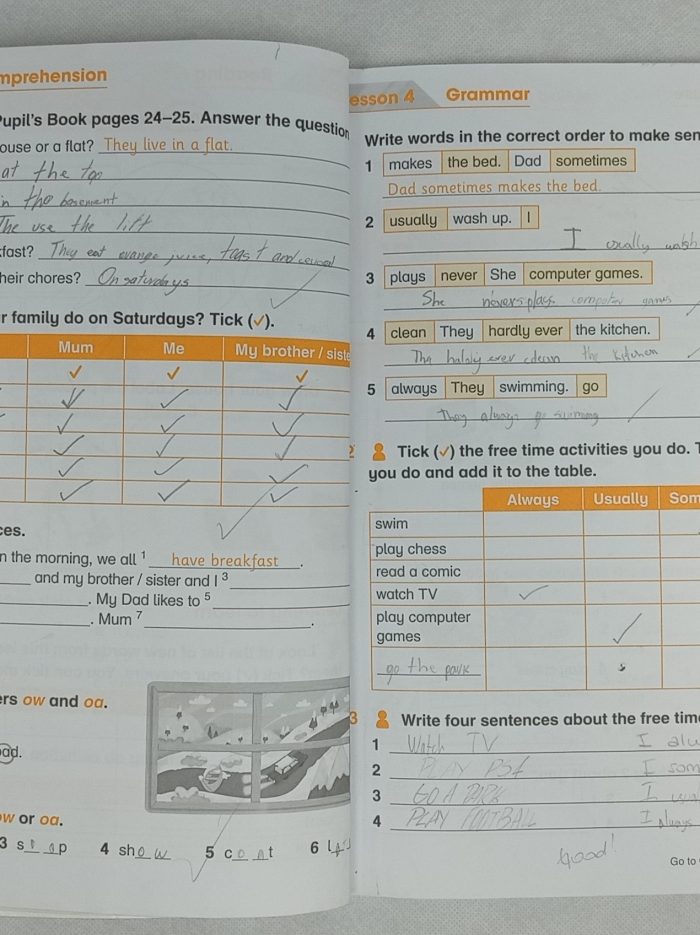 mprehension
Pupil's Book pages 24–25. Answer the question
ouse or a flat? They live in a flat.
at the top
in the basement
The use the lift
fast? They eat orange juice, toast and cereal
heir chores? On saturdays
r family do on Saturdays? Tick (✓).
Mum Me My brother / siste
ces.
n the morning, we all 1 have breakfast.
and my brother / sister and I 3
. My Dad likes to 5
. Mum 7 .
ers ow and oa.
oad.
ow or oa.
3 s_ _p 4 show 5 coat 6 l
esson 4 Grammar
Write words in the correct order to make sen
1 makes the bed. Dad sometimes
Dad sometimes makes the bed.
2 usually wash up. I
I usually wash
3 plays never She computer games.
She never plays computer games
4 clean They hardly ever the kitchen.
ever clean the kitchen
5 always They swimming. go
They always go swimming
2 Tick (✓) the free time activities you do. T
you do and add it to the table.
Always Usually Som
swim
play chess
read a comic
watch TV
play computer
games
go the park
3 Write four sentences about the free tim
1 Watch TV I alw
2 PLAY PS4 I som
3 GO A PARK I
4 PLAY FOOTBALL I always
Good!
Go to